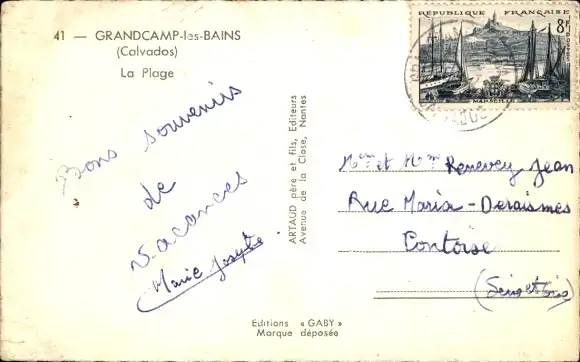 41 — GRANDCAMP-les-BAINS
(Calvados)
La Plage
Bons souvenirs
de
vacances
Marie Josèphe
ARTAUD père et fils, Editeurs
Avenue de la Close, Nantes
Editions « GABY »
Marque déposée
RÉPUBLIQUE FRANÇAISE
8F
POSTES
MARSEILLE
CALVADOS
Mr et Mme Renevey Jean
Rue Maria-Deraismes
Pontoise
(Seine et Oise)